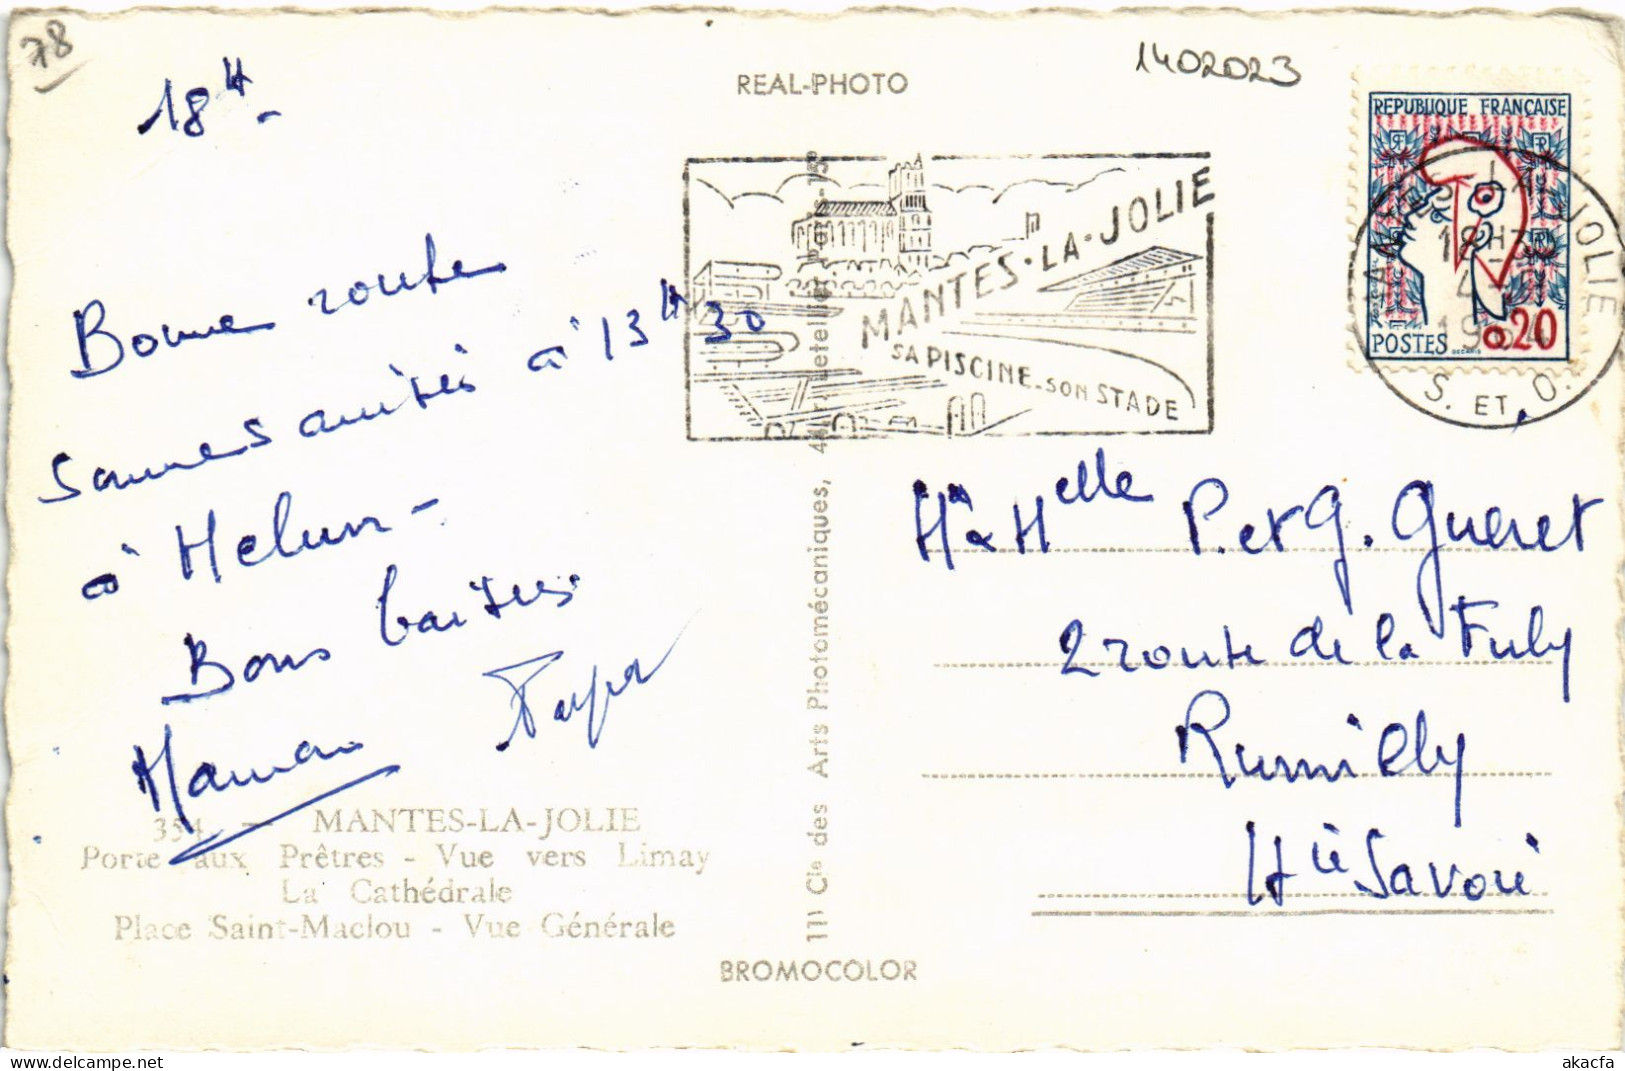 78
18H-
REAL-PHOTO
1402023
REPUBLIQUE FRANÇAISE
POSTES
0.20
DECARIS
MANTES-LA-JOLIE
18H
4
S. ET O.
MANTES-LA-JOLIE
SA PISCINE-SON STADE
Bonne route
sommes arrivés à 13H30
à Melun-
Bons baisers
Maman
354 — MANTES-LA-JOLIE
Porte aux Prêtres - Vue vers Limay
La Cathédrale
Place Saint-Maclou - Vue Générale
Cie des Arts Photomécaniques, Letellier, Paris-15e
BROMOCOLOR
M & Melle P. et G. Gueret
2 route de la Fuly
Rumilly
Hte Savoie
akacfa